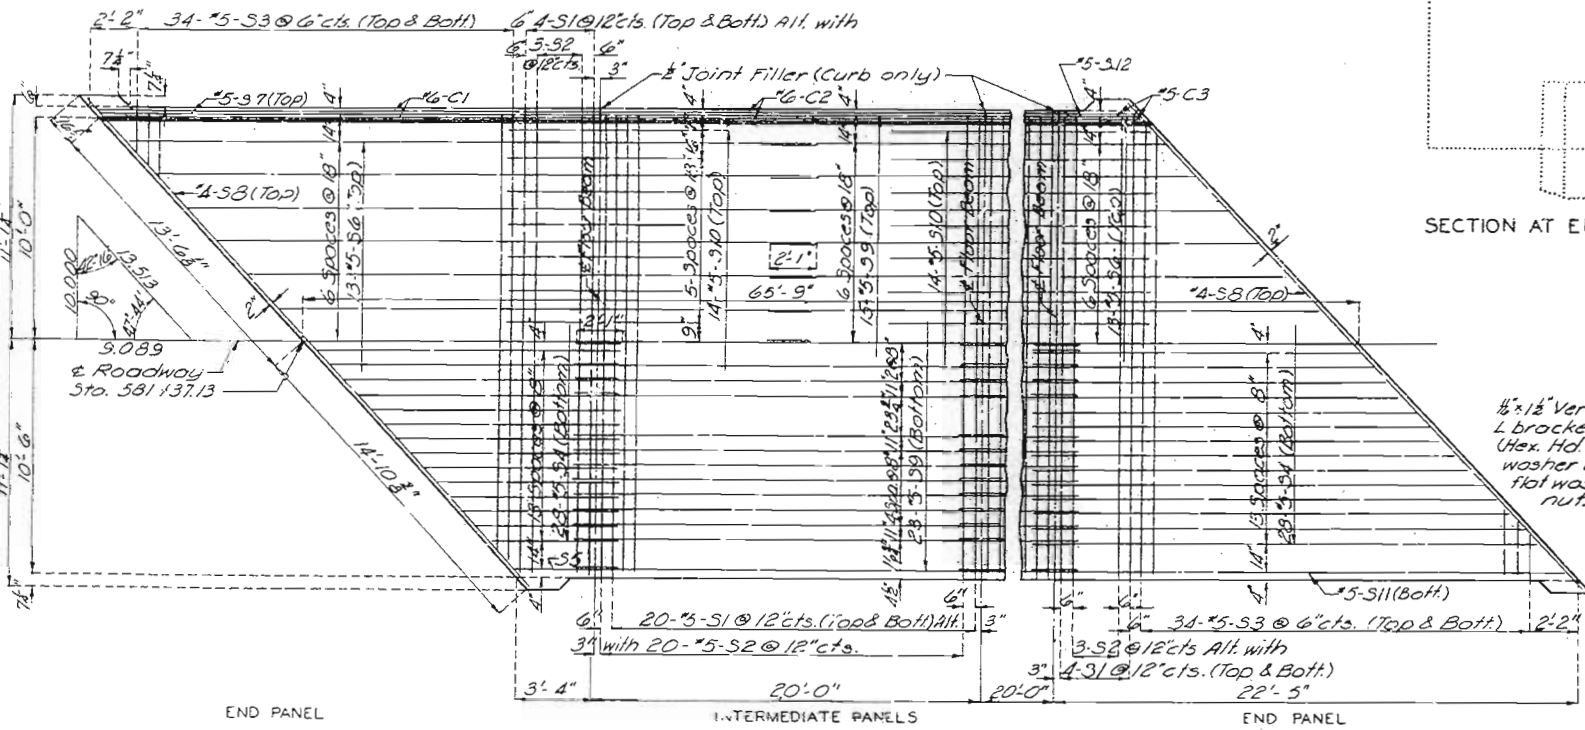 2'-2"
34-#5-S3 @ 6"cts. (Top & Bott)
6" 4-S1@12"cts. (Top & Bott) Alt. with
6"
3-S2
@12"cts.
6"
3"
½" Joint Filler (Curb only)
#5-S12
#5-S7(Top)
#6-C1
#6-C2
#5-C3
4"
4"
4"
4"
14"
14"
14"
#4-S8(Top)
6 Spaces @ 18"
13-#5-S6(Top)
¢ Floor Beam
14-#5-S10(Top)
6 Spaces @ 18"
15-#5-S9(Top)
14-#5-S10(Top)
¢ Floor Beam
¢ Floor Beam
6 Spaces @ 18"
13-#5-S6(Top)
SECTION AT
2"
#4-S8(Top)
10'-0"
10.000
42°16'
13.513
90°
47°44'
9.089
2"
2'-1"
65'-9"
9"
¢ Roadway
Sta. 581+37.13
10'-6"
14"
13 Spaces @ 8"
28-#5-S4(Bottom)
S5
4"
28-#5-S9(Bottom)
14"
13 Spaces @ 8"
28-#5-S4(Bottom)
4"
#5-S11(Bott.)
L bracke
(Hex. Hd.
washer
flat wa
nut
6"
20-#5-S1 @ 12"cts.(Top & Bott)Alt.
3"
6"
3"
with 20-#5-S2 @ 12"cts.
6"
6"
6"
34-#5-S3 @ 6"cts. (Top & Bott)
2'-2"
3-S2@12"cts Alt. with
3"
4-S1@12"cts.(Top & Bott.)
3'-4"
20'-0"
20'-0"
22'-5"
END PANEL
INTERMEDIATE PANELS
END PANEL